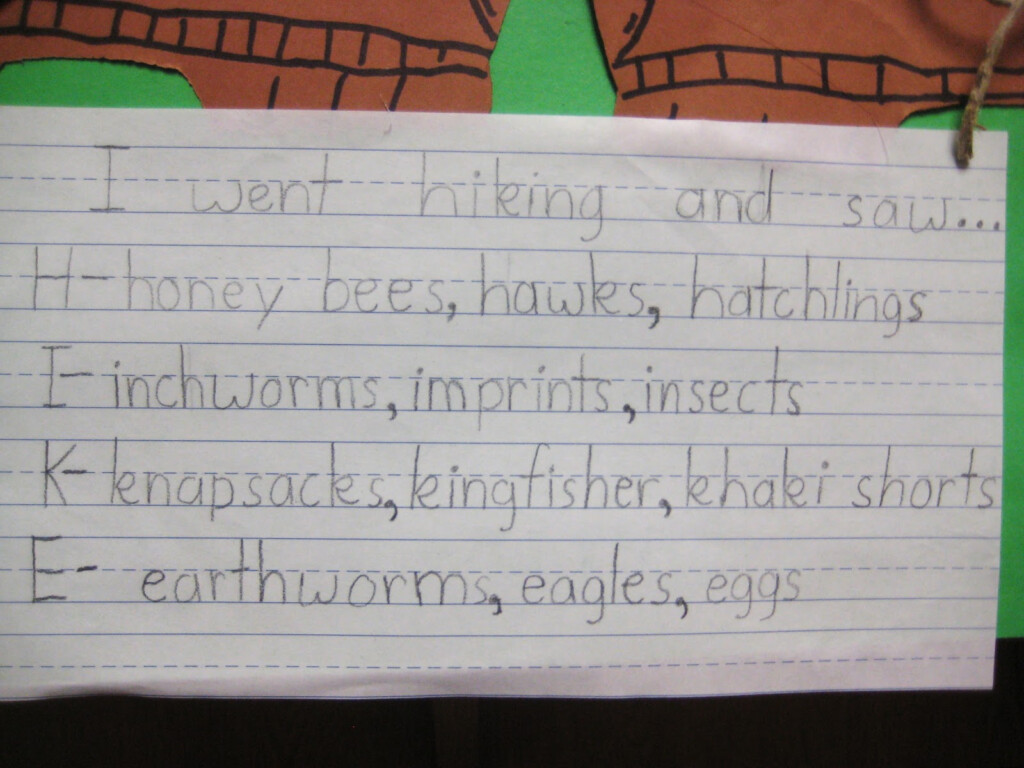 I went hiking and saw...
H-honey bees, hawks, hatchlings
I-inchworms, imprints, insects
K-knapsacks, kingfisher, khaki shorts
E- earthworms, eagles, eggs